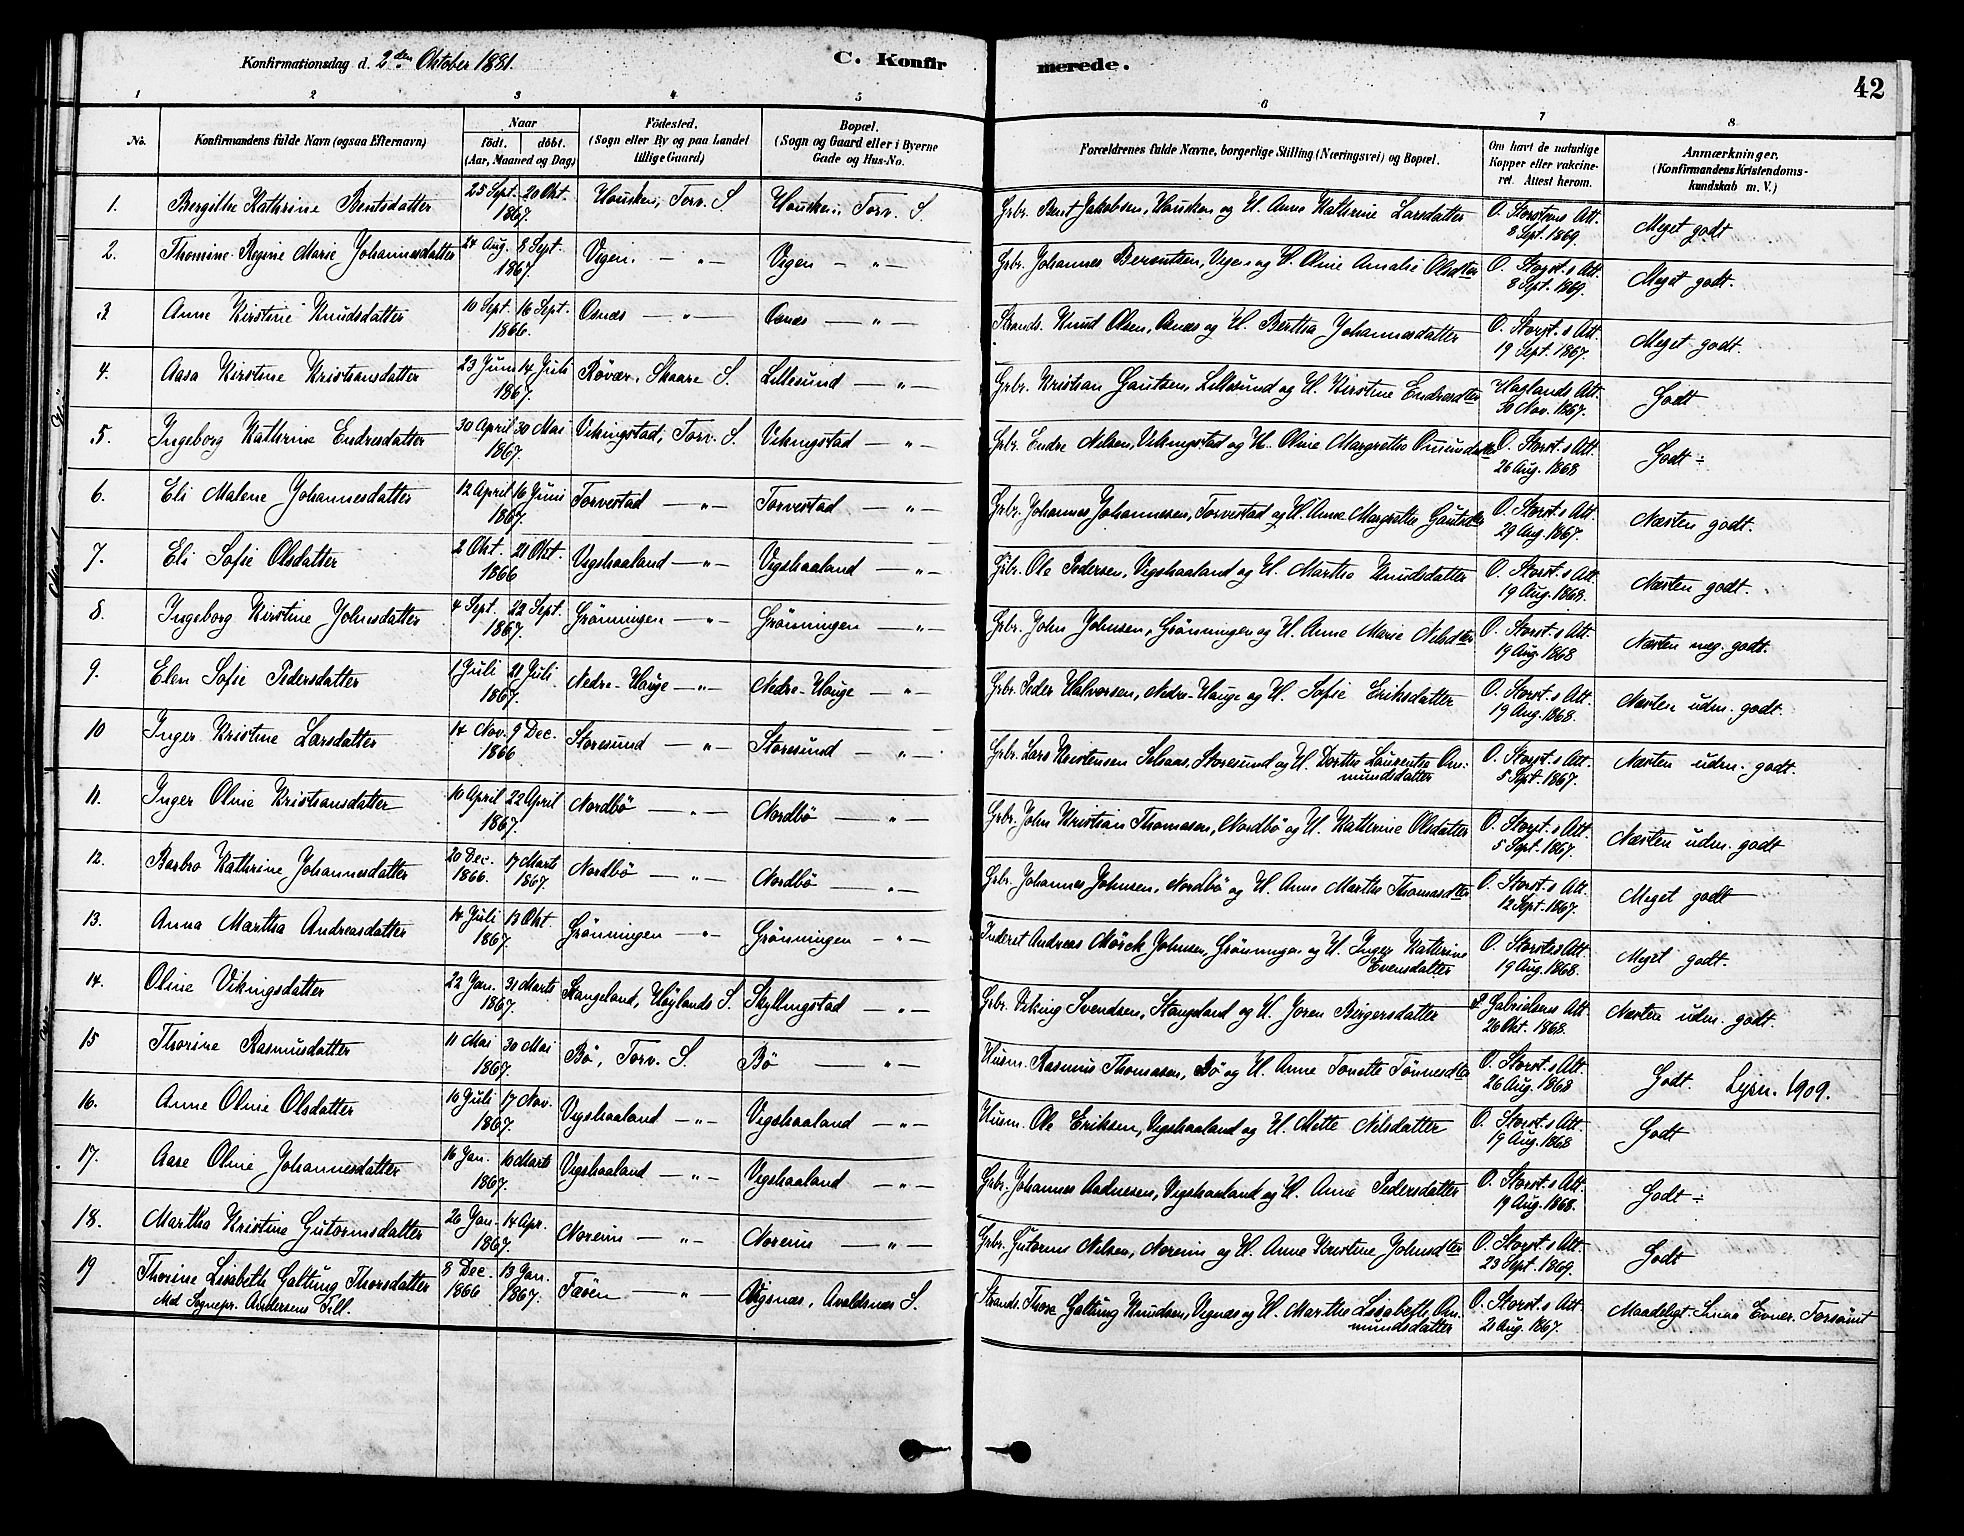 Konfirmationsdag d. 2den Oktober 1881.
C. Konfirmerede.
42
1 2 3 4 5 6 7 8
No.
Konfirmandens fulde Navn (ogsaa Efternavn)
Naar
födt. döbt.
(Aar, Maaned og Dag)
Födested.
(Sogn eller By og paa Landet
tillige Gaard)
Bopæl.
(Sogn og Gaard eller i Byerne
Gade og Hus-No.
Forældrenes fulde Navne, borgerlige Stilling (Næringsvei) og Bopæl.
Om havt de naturlige
Kopper eller vakcine-
ret. Attest herom.
Anmærkninger.
(Konfirmandens Kristendoms-
kundskab m. V.)
1. Bergitte Kathrine Bentsdatter 25 Sept. 1867. 20 Okt. Housken, Torv. S. Housken, Torv. S. Grbr. Bent Jakobsen, Housken og H. Anne Kathrine Larsdatter O. Storstens Att. 8 Sept. 1869. Meget godt
2. Thomine Regine Marie Johannesdatter 24 Aug. 8 Sept. 1867. Vigen. — " — Vigen — " — Grbr. Johannes Berentsen, Vigen og H. Oline Amalie Olsdter O. Storst.s Att. 8 Sept. 1869. Meget godt.
3 Anne Kirstine Knudsdatter 10 Sept. 16 Sept. 1866. Osnæs — " — Osnæs — " — Strands. Knud Olsen, Osnæs og H. Bertha Johannesdatter O. Storst.s Att. 19 Sept. 1867. Meget godt.
4. Aasa Kirstine Kristiansdatter 23 Juni 14 Juli 1867. Røvær, Skaare S. Lillesund — " — Grbr. Kristian Gautsen, Lillesund og H. Kirstine Endresdter Haglands Att. 30 Nov. 1867. Godt
5. Ingeborg Kathrine Endresdatter 30 April 30 Mai 1867. Vikingstad, Torv. S. Vikingstad — " — Grbr. Endre Nilsen, Vikingstad og H. Oline Margrethe Omundsdter O. Storst.s Att. 26 Aug. 1868 Godt ÷
6. Eli Malene Johannesdatter 12 April 16 Juni 1867. Torvestad — " — Torvestad — " — Grbr. Johannes Johannesen, Torvestad og H. Anne Margrethe Gautsdter O. Storst.s Att. 29 Aug. 1867. Næsten godt.
7. Eli Sofie Olsdatter 2 Okt. 21 Okt. 1866 Vigshaaland — " — Vigshaaland — " — Grbr. Ole Pedersen, Vigshaaland og H. Marthe Knudsdatter O. Storst.s Att. 19 Aug. 1868. Næsten godt.
8. Ingeborg Kirstine Johnsdatter 4 Sept. 22 Sept. 1867. Grönningen — " — Grönningen — " — Grbr. John Johnsen, Grönningen og H. Anne Marie Nilsdter O. Storst.s Att. 19 Aug. 1868 Næsten meg. godt.
9. Elen Sofie Pedersdatter 1 Juli 21 Juli 1867. Nedre-Hauge — " — Nedre-Hauge — " — Grbr. Peder Halvorsen, Nedre-Hauge og H. Sofie Eriksdatter O. Storst.s Att. 19 Aug. 1868. Næsten udm. godt.
10 Inger Kristine Larsdatter 14 Nov. 9 Dec. 1866 Storesund — " — Storesund — " — Grbr. Lars Kristensen Storesund og H. Dorthe Laurentse Om- mundsdatter O. Storst.s Att. 5 Sept. 1867. Næsten udm. godt.
11. Inger Oline Kristiansdatter 10 April 22 April 1867. Nordbö — " — Nordbö — " — Grbr. John Kristian Thomasen, Nordbö og H. Kathrine Olsdatter O. Storst.s Att. 5 Sept. 1867. Næsten udm. godt
12. Barbro Kathrine Johannesdatter 20 Dec. 1866. 17 Marts 1867. Nordbö — " — Nordbö — " — Grbr. Johannes Johnsen, Nordbö og H. Anne Marthe Thomasdter O. Storst.s Att. 12 Sept. 1867. Meget godt
13. Anna Martha Andreasdatter 14 Juli 13 Okt. 1867. Grönningen — " — Grönningen — " — Inderst Andreas Mörck Johnsen, Grönningen og H. Inger Kathrine Evensdatter O. Storst.s Att. 19 Aug. 1868. Meget godt.
14. Oline Vikingsdatter 22 Jan. 31 Marts 1867. Stangeland, Höylands S. Skyllingstad — " — Grbr. Viking Svendsen, Stangeland og H. Joren Birgersdatter P. Gabrielsens Att. 26 Okt. 1868. Næsten udm. godt.
15 Thorine Rasmusdatter 11 Mai 30 Mai 1867. Bö, Torv. S. Bö — " — Husm. Rasmus Thomasen, Bö og H. Anne Tonette Tönnesdter O. Storst.s Att. 26 Aug. 1868 Godt. Lysn. 1909.
16. Anne Oline Olsdatter 10 Juli 17 Nov. 1867. Vigshaaland — " — Vigshaaland — " — Husm. Ole Eriksen, Vigshaaland og H. Mette Nilsdatter O. Storst.s Att. 19 Aug. 1868 Godt
17. Aase Oline Johannesdatter 16 Jan. 10 Marts 1867. Vigshaaland — " — Vigshaaland — " — Grbr. Johannes Aadnesen, Vigshaaland og H. Anne Pedersdatter O. Storst.s Att. 19 Aug. 1868. Godt ÷
18. Martha Kristine Gutormsdatter 26 Jan. 14 Apr. 1867. Noreim — " — Noreim — " — Grbr. Gutorm Nilsen, Noreim og H. Anne Kristine Johnsdter O. Storst.s Att. 23 Sept. 1869. Godt
19 Thorine Lisabeth Galtung Thorsdatter 8 Dec. 1866 13 Jan. 1867. Fæöen — " — Vigsnæs, Avaldsnæs S. Strands. Thore Galtung Knudsen, Vignæs og H. Marthe Lisabeth Om- mundsdatter O. Storst.s Att. 21 Aug. 1867. Maadeligt. Smaa Evner. Forsömt
Med Sognepr. Andersens Till.